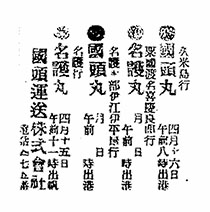 久米島行
國頭丸 四月十六日
午前八時出港
粟國渡名喜慶良間行
名護丸 月 日
午 時出港
名護本部伊江伊平屋行
國頭丸 月 日
午前 時出港
名護行
名護丸 四月十五日
午前十一時出帆
國頭運送株式會社